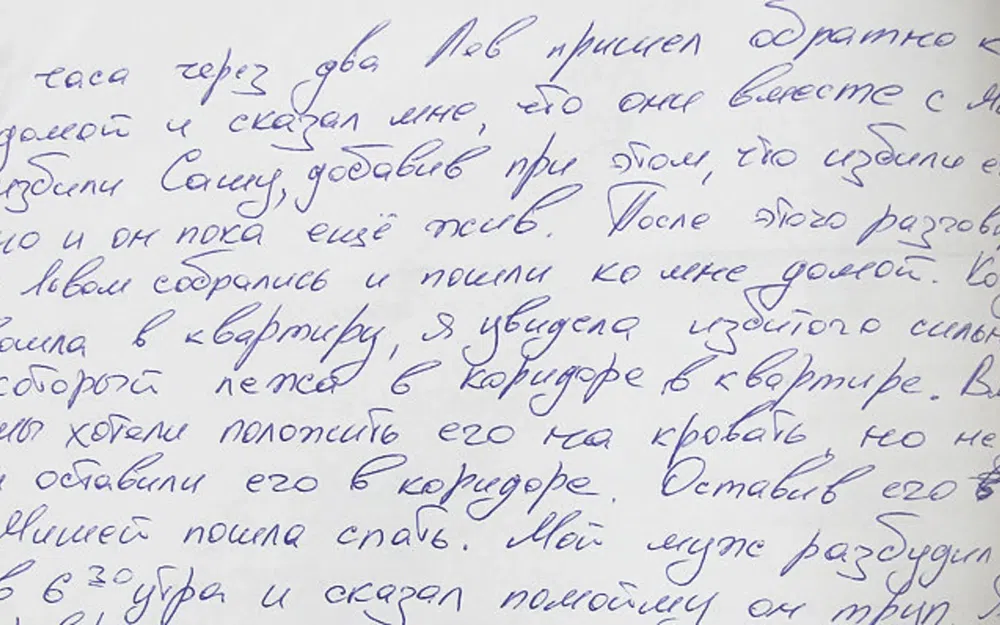 часа через два Лев пришел обратно к
домой и сказал мне, что они вместе с М
избили Сашу, добавив при этом, что избили е
но и он пока ещё жив. После этого разгов
Львом собрались и пошли ко мне домой. Ко
ошла в квартиру, я увидела избитого сильн
который лежа в коридоре в квартире. В
мы хотели положить его на кровать, но не
и оставили его в коридоре. Оставив его в
Мишей пошла спать. Мой муж разбудил
в 6 30 утра и сказал помойму он труп.